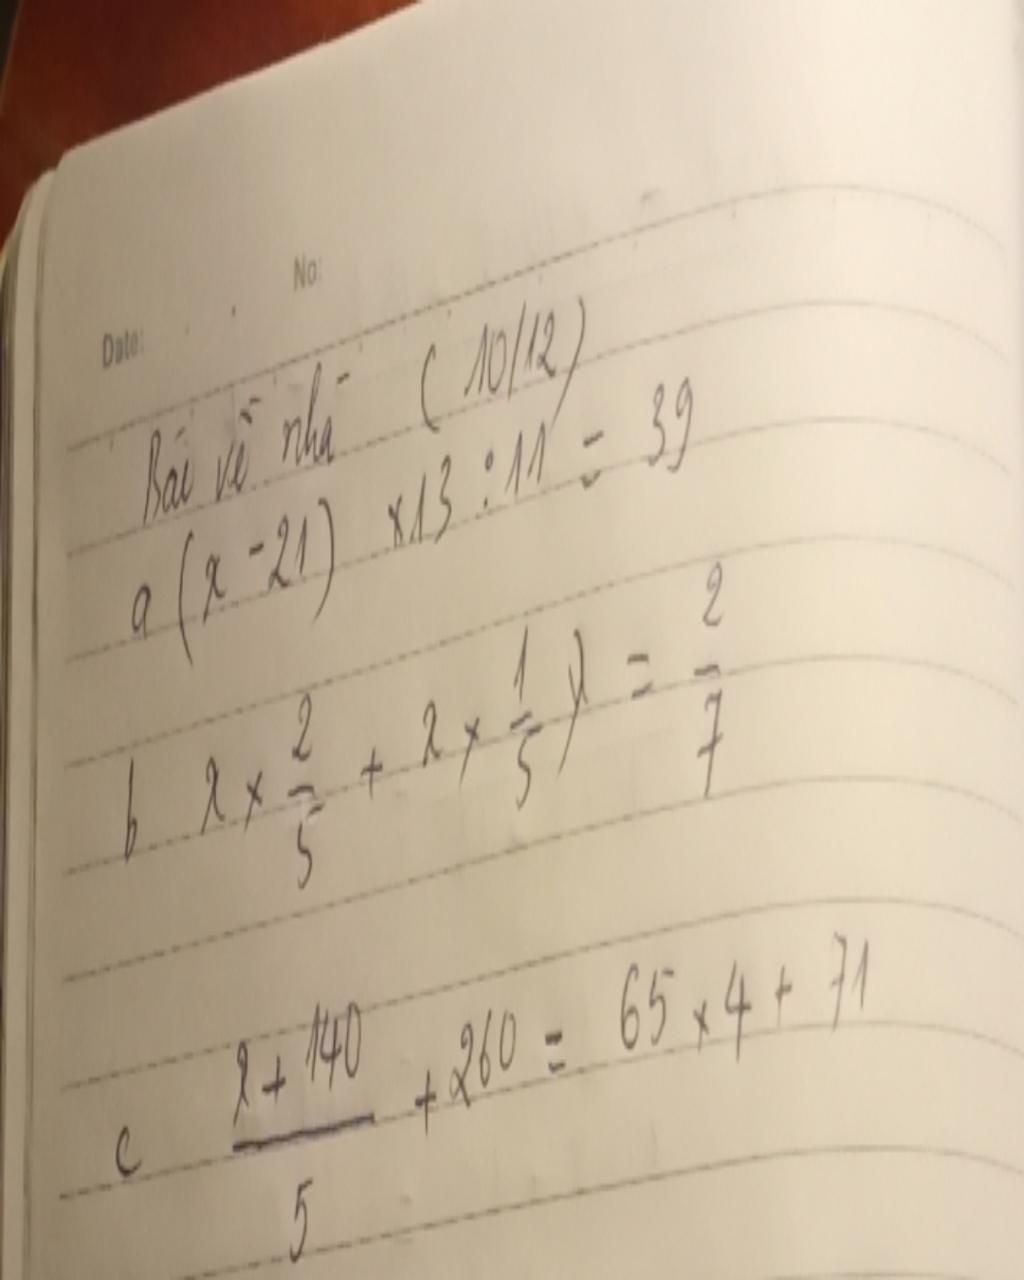 No:
Date:
Bài về nhà ( 10/12)
a (x - 21) × 13 : 11 = 39
b x × 2/5 + x × 1/5 ) = 2/7
c (x + 140)/5 + 260 = 65 × 4 + 71